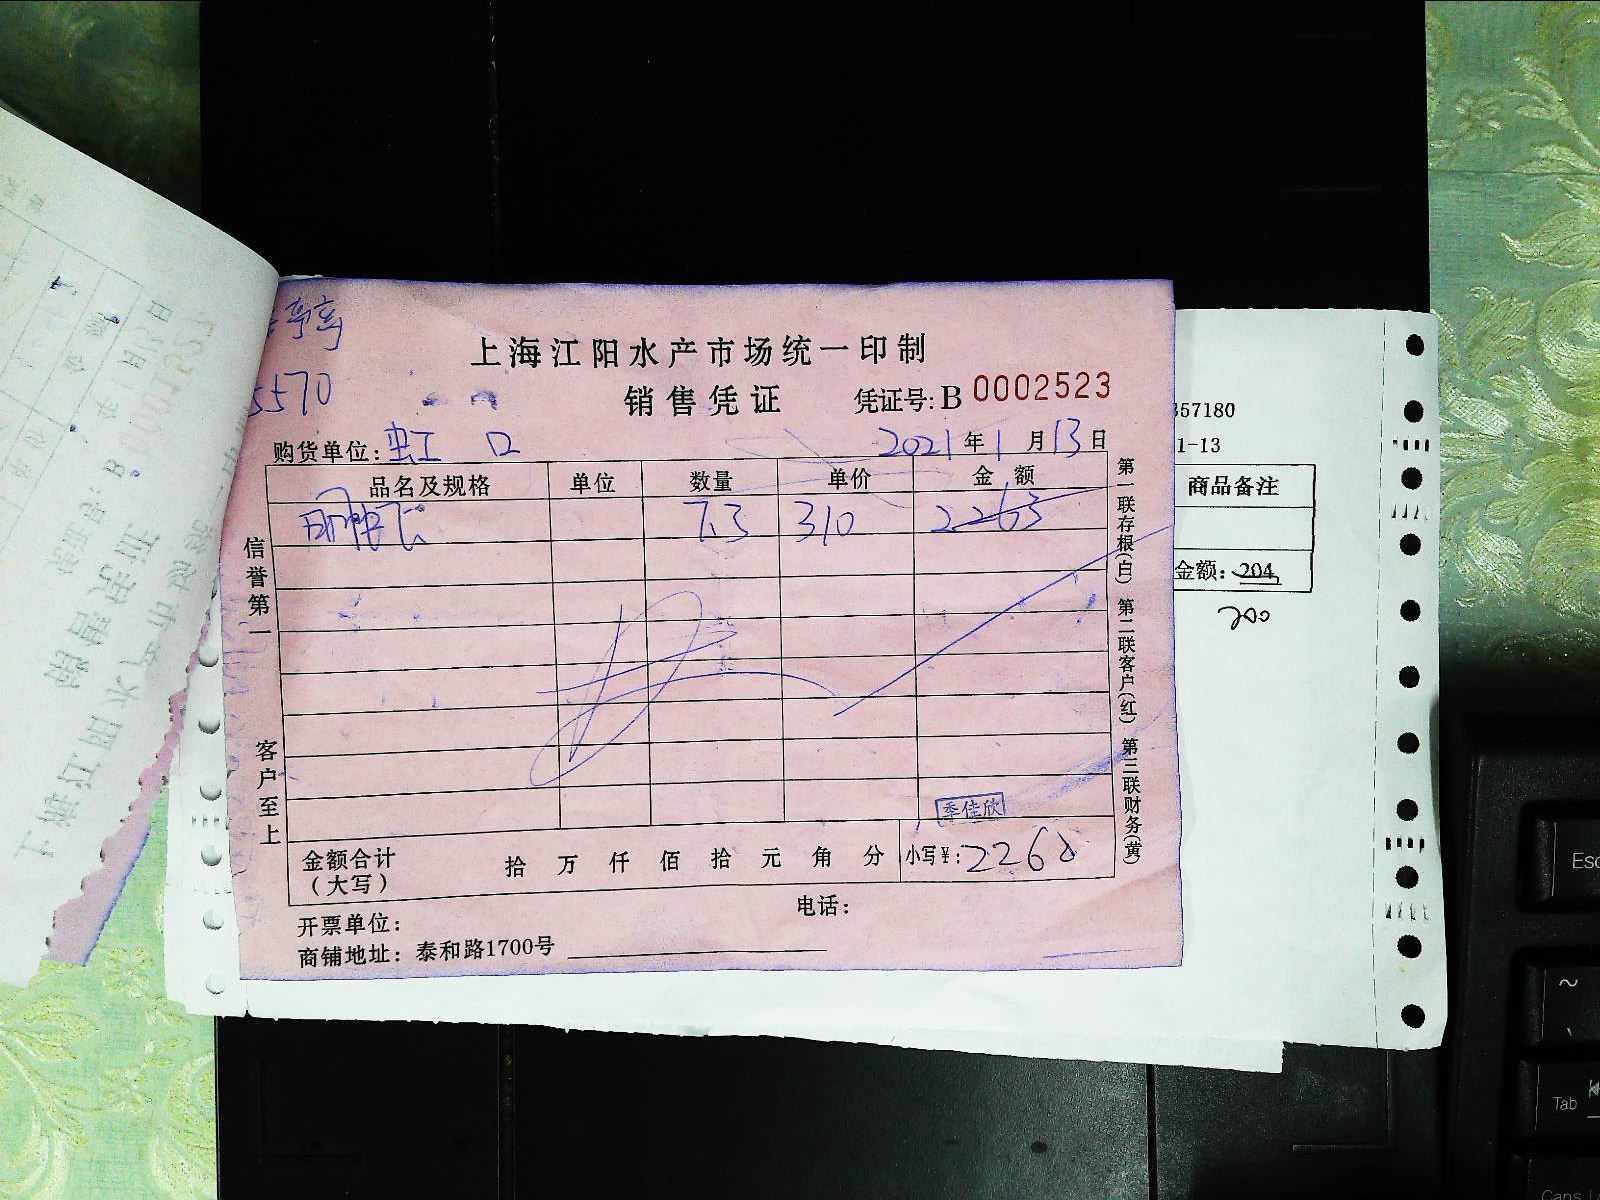 5570
上海江阳水产市场统一印制
销售凭证 凭证号:B 0002523
购货单位:虹口 2021年1月13日
品名及规格 单位 数量 单价 金额
7.3 310 2263
信誉第一
客户至上
第一联存根(白) 第二联客户(红) 第三联财务(黄)
季佳欣
金额合计(大写) 拾 万 仟 佰 拾 元 角 分 小写¥:2260
开票单位: 电话:
商铺地址:泰和路1700号
357180
1-13
商品备注
金额:204
200
Esc
~
Tab